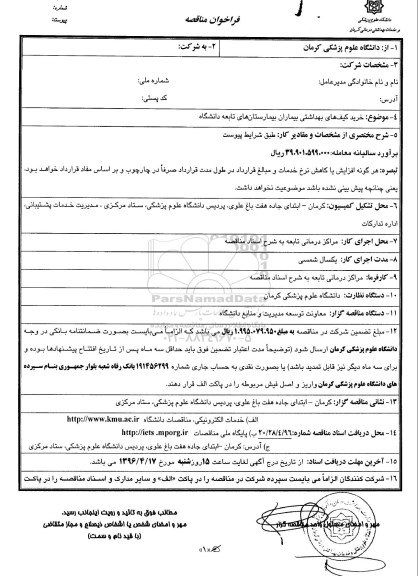 شماره:
پیوست:
فراخوان مناقصه
دانشگاه علوم پزشکی
و خدمات بهداشتی درمانی کرمان
۱- از: دانشگاه علوم پزشکی کرمان
۲- به شرکت:
۳- مشخصات شرکت:
نام و نام خانوادگی مدیرعامل: شماره ملی:
آدرس: کد پستی:
۴- موضوع: خرید کیف‌های بهداشتی بیماران بیمارستان‌های تابعه دانشگاه
۵- شرح مختصری از مشخصات و مقادیر کار: طبق شرایط پیوست
برآورد سالیانه معامله: ۳۹،۹۰۱،۵۹۹،۰۰۰ ریال
تبصره: هر گونه افزایش یا کاهش نرخ خدمات و مبالغ قرارداد در طول مدت قرارداد صرفاً در چارچوب و بر اساس مفاد قرارداد خواهد بود،
یعنی چنانچه پیش بینی نشده باشد موضوعیت نخواهد داشت.
۶- محل تشکیل کمیسیون: کرمان – ابتدای جاده هفت باغ علوی، پردیس دانشگاه علوم پزشکی، ستاد مرکزی ، مدیریت خدمات پشتیبانی،
اداره تدارکات
۷- محل اجرای کار: مراکز درمانی تابعه به شرح اسناد مناقصه
۸- مدت اجرای کار: یکسال شمسی
۹- کارفرما: مراکز درمانی تابعه به شرح اسناد مناقصه
۱۰- دستگاه نظارت: دانشگاه علوم پزشکی کرمان
۱۱- دستگاه مناقصه گزار: معاونت توسعه مدیریت و منابع دانشگاه
۱۲- مبلغ تضمین شرکت در مناقصه به مبلغ ۱،۹۹۵،۰۷۹،۹۵۰ ریال می باشد که الزاماً می‌بایست بصورت ضمانتنامه بانکی در وجه
دانشگاه علوم پزشکی کرمان ارسال شود (توضیحاً مدت اعتبار تضمین فوق باید حداقل سه ماه پس از تاریخ افتتاح پیشنهادها بوده و
برای سه ماه دیگر نیز قابل تمدید باشد) یا بصورت نقدی به حساب جاری شماره ۱۹۱۴۵۶۲۹۹ بانک رفاه شعبه بلوار جمهوری بنام سپرده
های دانشگاه علوم پزشکی کرمان واریز و اصل فیش مربوطه را در پاکت الف قرار دهند.
۱۳- نشانی مناقصه گزار: کرمان – ابتدای جاده هفت باغ علوی، پردیس دانشگاه علوم پزشکی، ستاد مرکزی
الف) خدمات الکترونیکی، مناقصات دانشگاه http://www.kmu.ac.ir
۱۴- محل دریافت اسناد مناقصه شماره: ۲۰/۲۸/۴/۹۶ ب) پایگاه ملی مناقصات http://iets .mporg.ir
ج) آدرس: کرمان -ابتدای جاده هفت باغ علوی، پردیس دانشگاه علوم پزشکی، ستاد مرکزی
۱۵- آخرین مهلت دریافت اسناد: از تاریخ درج آگهی لغایت ساعت ۱۵ روز شنبه مورخ ۱۳۹۶/۴/۱۷ می باشد.
۱۶- شرکت کنندگان الزام می بایست سپرده شرکت در مناقصه را در پاکت «الف» و سایر مدارک و اسناد مناقصه را در پاکت
مطالب فوق به تائید و رویت اینجانب رسید.
مهر و امضای شخص یا اشخاص ذیصلاح و مجاز متقاضی
(با قید نام و سمت)
مهر و امضای دستگاه مناقصه گزار
ParsNamadData